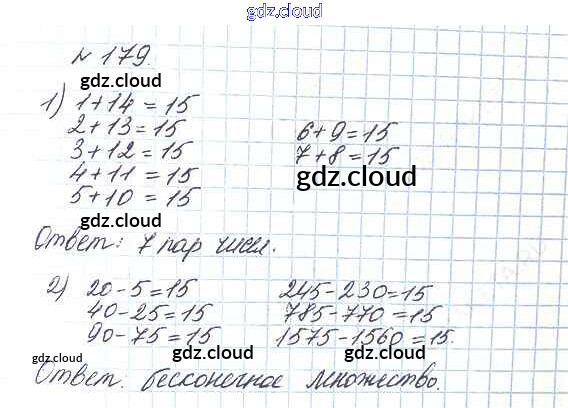 gdz.cloud
№ 179.
gdz.cloud
1) 1+14=15
2+13=15
6+9=15
3+12=15
7+8=15
4+11=15
gdz.cloud
5+10=15
gdz.cloud
Ответ: 7 пар чисел.
2) 20-5=15
245-230=15
40-25=15
785-770=15
90-75=15
1575-1560=15.
gdz.cloud
gdz.cloud
Ответ. бесконечное множество.